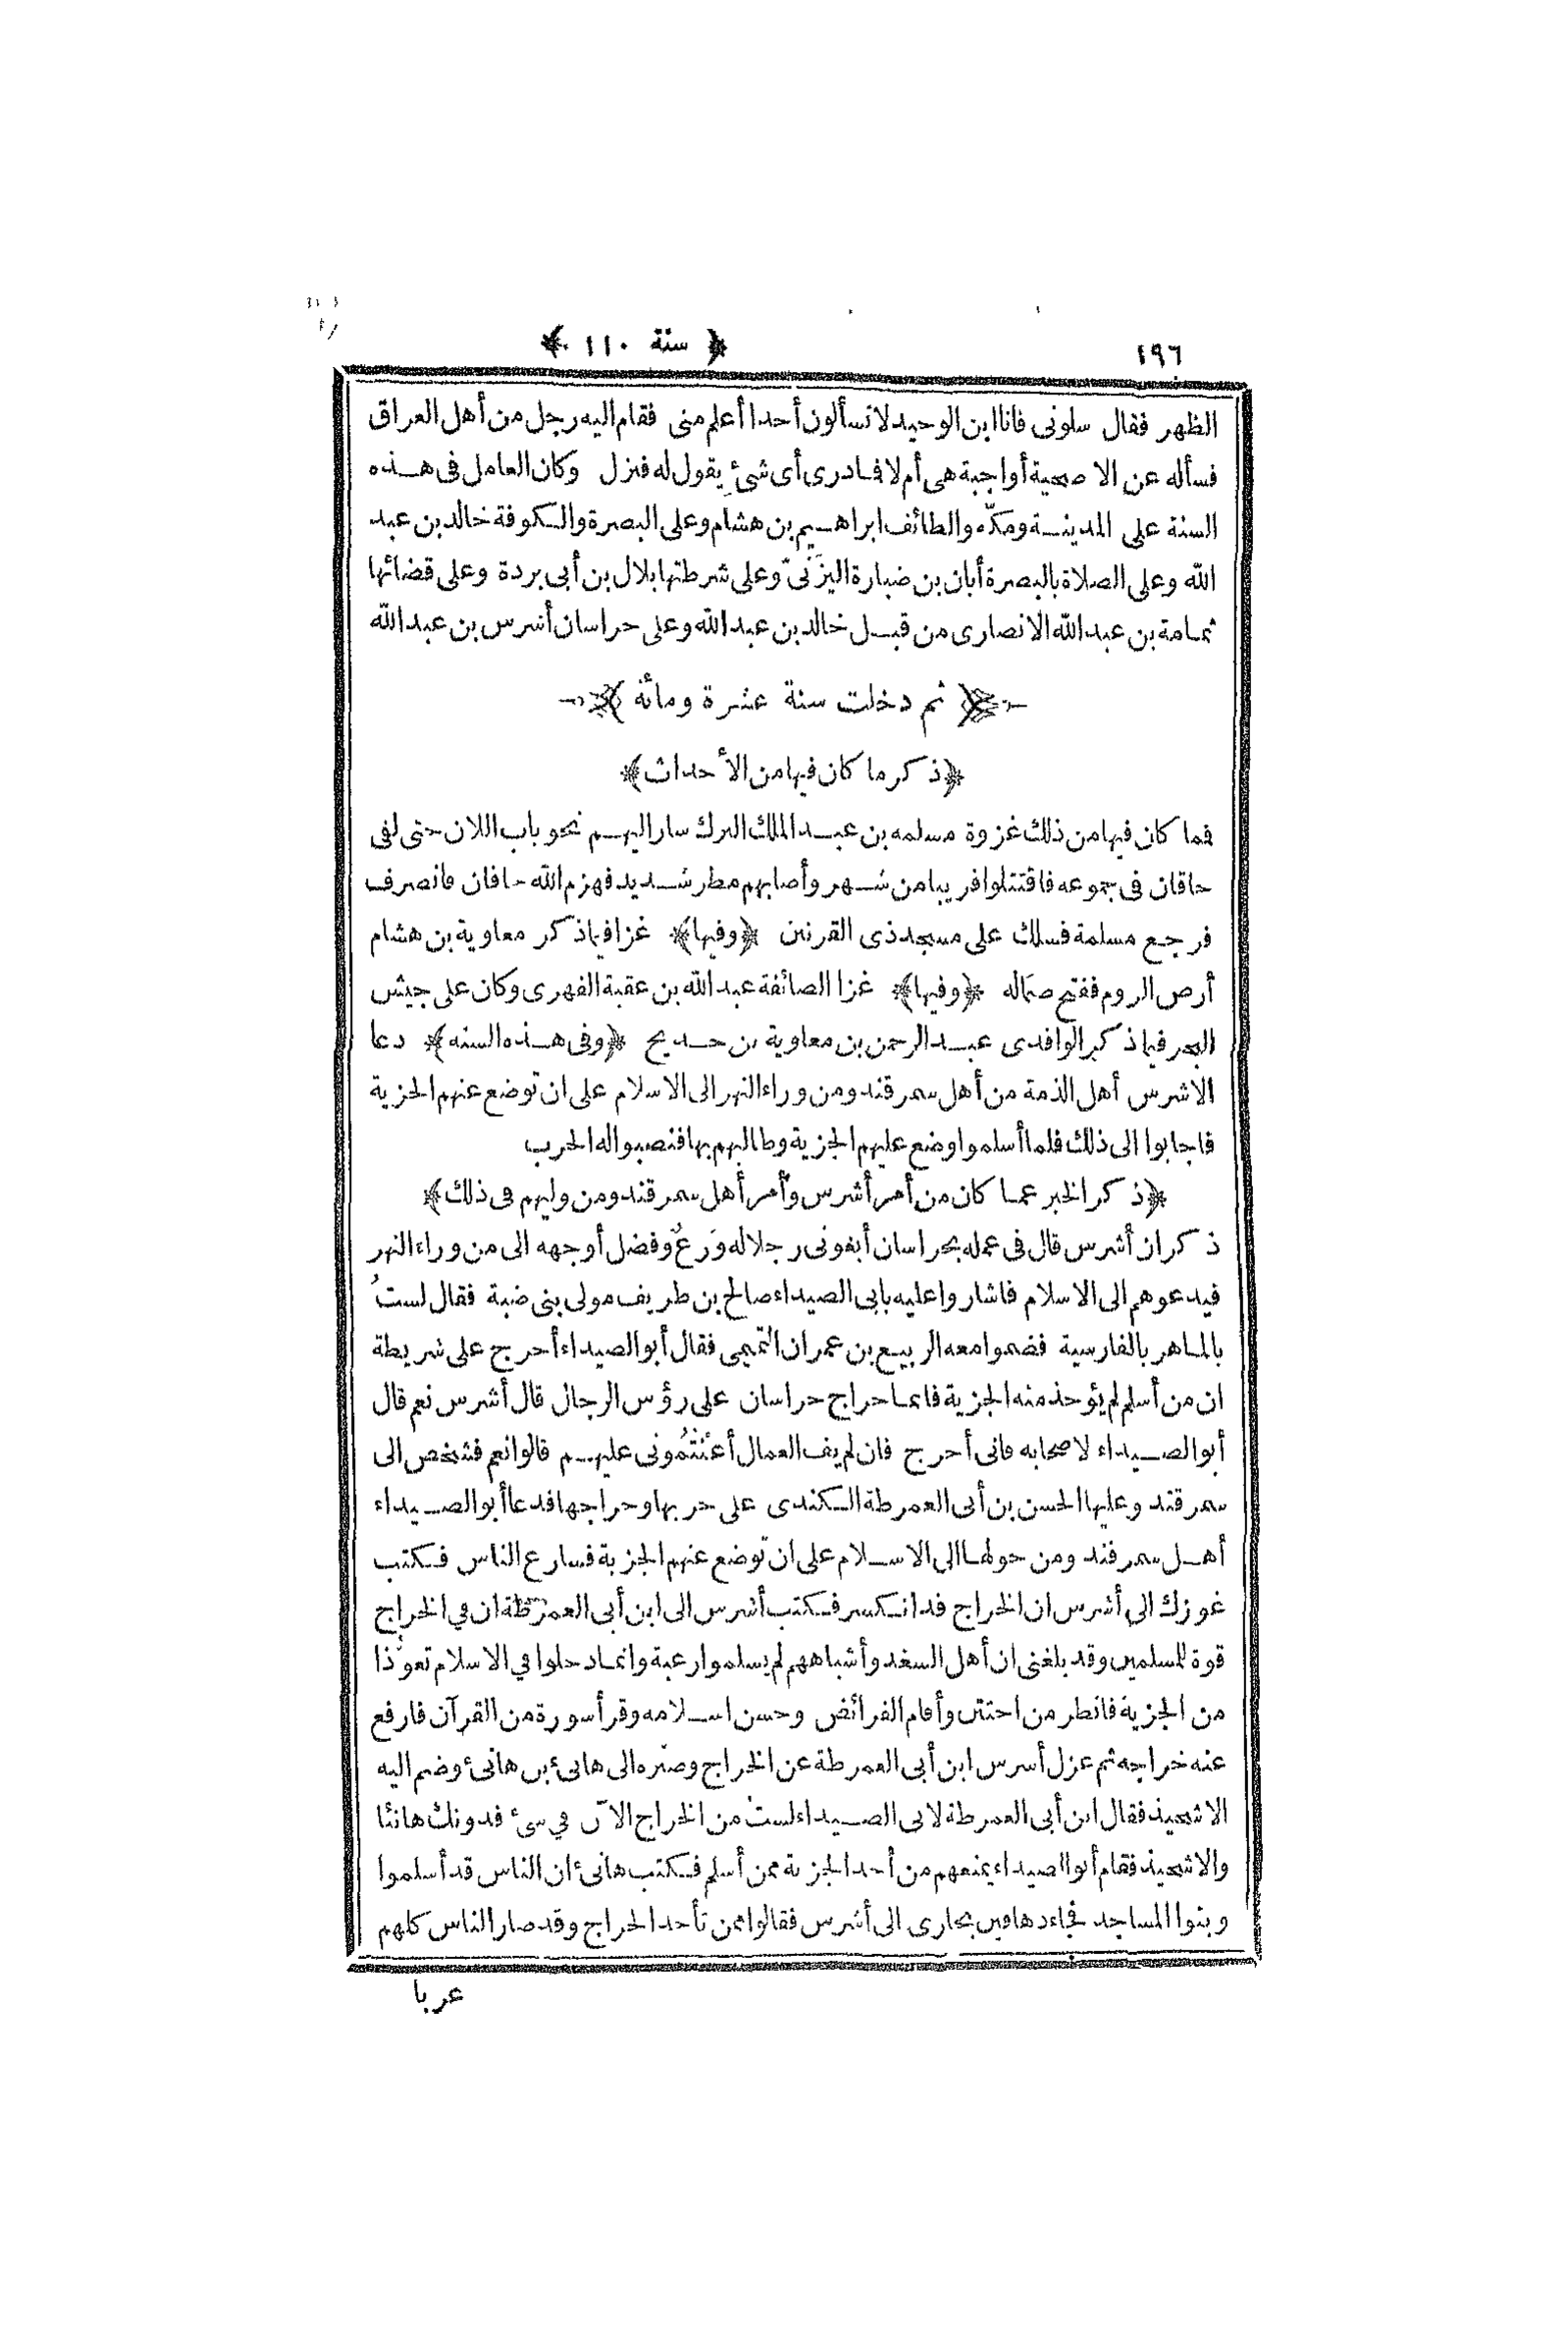 ١٩٦
﴿ سنة ١١٠ ﴾
الظهر فقال سلونى فانا ابن الوحيد لا تسألون أحدا أعلم منى فقام اليه رجل من أهل العراق
فسأله عن الاضحية أواجبة هى أم لا فادرى أى شئ يقول له فنزل وكان العامل فى هذه
السنة على المدينة ومكة والطائف ابراهيم بن هشام وعلى البصرة والكوفة خالد بن عبد
الله وعلى الصلاة بالبصرة أبان بن ضبارة اليَزَنىّ وعلى شرطتها بلال بن أبى بردة وعلى قضائها
ثمامة بن عبد الله الانصارى من قبل خالد بن عبد الله وعلى خراسان أشرس بن عبد الله
﴿ ثم دخلت سنة عشرة ومائة ﴾
﴿ذكر ما كان فيها من الأحداث﴾
فما كان فيها من ذلك غزوة مسلمة بن عبد الملك الترك سار اليهم نحو باب اللان حتى لقى
خاقان فى جموعه فاقتتلوا قريبا من شهر وأصابهم مطر شديد فهزم الله خاقان فانصرف
فرجع مسلمة فسلك على مسجد ذى القرنين ﴿وفيها﴾ غزا فيما ذكر معاوية بن هشام
أرض الروم ففتح صماله ﴿وفيها﴾ غزا الصائفة عبد الله بن عقبة الفهرى وكان على جيش
البحر فيما ذكر الواقدى عبد الرحمن بن معاوية بن حديج ﴿وفى هذه السنة﴾ دعا
الاشرس أهل الذمة من أهل سمرقند ومن وراء النهر الى الاسلام على ان توضع عنهم الجزية
فاجابوا الى ذلك فلما أسلموا وضع عليهم الجزية وطالبهم بها فنصبوا له الحرب
﴿ذكر الخبر عما كان من أمر أشرس وأمر أهل سمرقند ومن وليهم فى ذلك﴾
ذكر ان أشرس قال فى عمله بخراسان أبغونى رجلا له وَرَعٌ وفضل أوجهه الى من وراء النهر
فيدعوهم الى الاسلام فاشاروا عليه بابى الصيداء صالح بن طريف مولى بنى ضبة فقال لستُ
بالماهر بالفارسية فضموا معه الربيع بن عمران التّميمى فقال أبو الصيداء أخرج على شريطة
ان من أسلم لم يؤخذ منه الجزية فانما خراج خراسان على رؤس الرجال قال أشرس نعم قال
أبو الصيداء لاصحابه فانى أخرج فان لم يف العمال أعَنْتُمُونى عليهم قالوا نعم فشخص الى
سمرقند وعليها الحسن بن أبى العمرطة الكندى على حربها وخراجها فدعا أبو الصيداء
أهل سمرقند ومن حولها الى الاسلام على ان توضع عنهم الجزية فسارع الناس فكتب
غوزك الى أشرس ان الخراج قد انكسر فكتب أشرس الى ابن أبى العمرّطة ان في الخراج
قوة للمسلمين وقد بلغنى ان أهل السغد وأشباههم لم يسلموا رغبة وانما دخلوا في الاسلام تعوّذا
من الجزية فانظر من اختتن وأقام الفرائض وحسن اسلامه وقرأ سورة من القرآن فارفع
عنه خراجه ثم عزل أشرس ابن أبى العمرطة عن الخراج وصيّره الى هانئ بن هانئ وضم اليه
الاشحيذ فقال ابن أبى العمرطة لابى الصيداء لست من الخراج الآن في شئ فدونك هانئا
والاشحيذ فقام أبو الصيداء يمنعهم من أخذ الجزية ممن أسلم فكتب هانئ ان الناس قد أسلموا
وبنوا المساجد فجاء دهاقين بخارى الى أشرس فقالوا ممن تأخذ الخراج وقد صار الناس كلهم
عربا